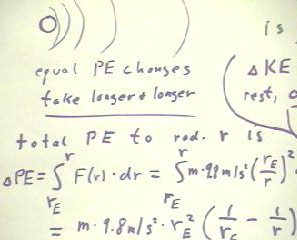 is
equal PE changes
take longer + longer
ΔKE
rest,
total PE to rad. r is
ΔPE = ∫_{r_E}^{r} F(r)·dr = ∫_{r_E}^{r} m·9.8 m/s² (r_E/r)²
= m·9.8 m/s²·r_E² (1/r_E - 1/r